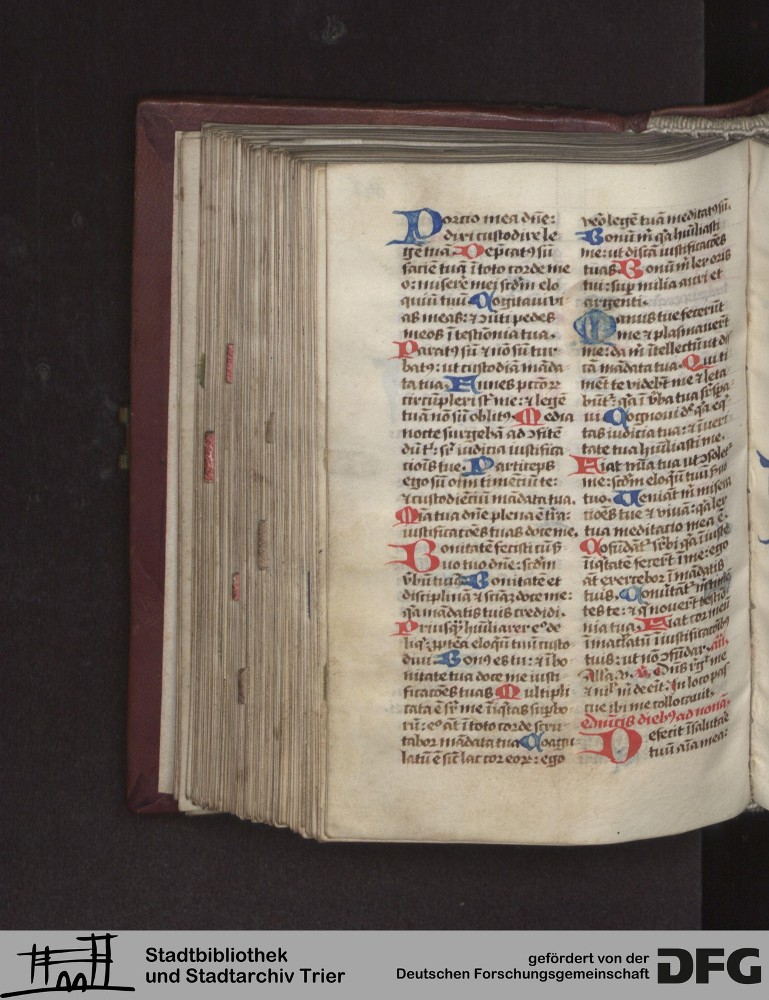 Portio mea dn̄e:
dixi custodire le
gē tuā. Dep̄catꝰ sū
faciē tuā ī toto corde me
o: miserē mei scd̄m elo
quiū tuū. Cogitaui vi
as meas: ⁊ ꝯuti pedes
meos ī testīonia tua.
Paratꝰ sū ⁊ nō sū tur
batꝰ: ut custodiā māda
ta tua. Funes pc̄cōꝝ
circūplexi st̄ me: ⁊ legē
tuā nō sū oblitꝰ. Media
nocte surgebā ad ꝯfitē
dū t̄: sr̄ iudicia iustifica
cīois tue. Particeps
ego sū oīm timēciū te:
⁊ custodiēciū mādata tua.
Mīa tua dn̄e plena ē tr̄a:
iustificacōes tuas doce me.
Bonitatē fecisti cū s̄
uo tuo dn̄e: scd̄m
v̄bū tuū. Bonitatē et
disciplinā ⁊ sciāꝫ doce me:
q̄a mādatis tuis credidi.
Priusq̄ꝫ hūiliarer eº de
liq̄: ꝓpt̄ea eloq̄ū tuū custo
diui. Bonꝰ es tu: ⁊ ī bo
nitate tua doce me iusti
ficacōes tuas. Multipli
cata ē sr̄ me īiq̄tas suꝑbo
rū: eº āt ī toto corde scru
tabor mādata tua. Coagu
latū ē sic̄ lac cor eoꝝ: ego
veō legē tuā meditatꝰ sū.
Bonū m̄ q̄a hūiliasti
me: ut discā iustificacōes
tuas. Bonū m̄ lex oris
tui: sup milia auri et
argenti.
Manus tue fecerūt
me ⁊ plasmauerūt
me: da m̄ ītellectū ut di
scā mādata tua. Qui ti
mēt te videbūt me ⁊ leta
būt᷑: q̄a ī v̄ba tua suꝑspa
ui. Cognoui dn̄e q̄a eq̄
tas iudicia tua: ⁊ ī veri
tate tua hūiliasti me.
Fiat mīa tua ut ꝯsolet᷑
me: scd̄m eloq̄ū tuū s̄uo
tuo. Ueniāt m̄ misera
ciōes tue ⁊ viuā: q̄a lex
tua meditacio mea ē.
Cōfūdāt᷑ suꝑbi q̄a īiuste
īiq̄tatē fecerūt ī me: ego
āt exercebor ī mādatis
tuis. Cōuertāt᷑ m̄ timē
tes te: ⁊ q̄ nouerūt testīo
nia tua. Fiat cor meū
īmaclatū ī iustificacōibꝰ
tuis: ut nō ꝯfūdar. an̄.
Alla. ... Dn̄s rḡt me
⁊ nil̄ m̄ deerit: In loco pas
cue ibi me collocauit.
Omībꝫ diebꝰ ad nonā.
Defecit ī salutare
tuū aīa mea:
Stadtbibliothek
und Stadtarchiv Trier
gefördert von der
Deutschen Forschungsgemeinschaft
DFG